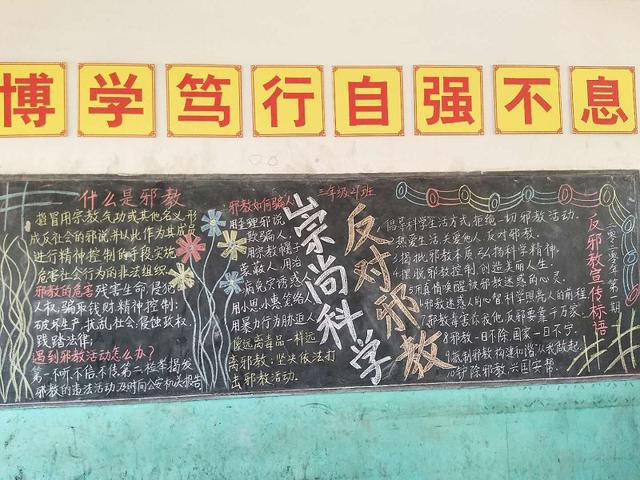 博学笃行自强不息
什么是邪教
指冒用宗教、气功或其他名义,形
成反社会的邪说,并以此作为
进行精神控制的手段实施
危害社会行为的非法组织
邪教的危害 残害生命、侵犯
人权、骗取钱财、精神控制;
破坏生产、扰乱社会、侵蚀政权
践踏法律。
遇到邪教活动怎么办?
第一不听、不信、不传。第二检举揭发
邪教的违法活动,及时向公安机关报告
邪教如何骗人
用歪理邪说
欺骗人。
用宗教帽子
蒙骗人 用治
病免灾诱惑人
用小恩小惠笼络人
用暴力行为胁迫人
像远离毒品一样远
离邪教,坚决依法打
击邪教活动。
三年级21班
崇尚科学
反对邪教
倡导科学生活方式,拒绝一切邪教活动。
2热爱生活 关爱他人 反对邪教。
3揭批邪教本质 弘扬科学精神。
4摆脱邪教控制 创造美丽人生。
5用真情唤醒被邪教迷惑的心灵。
6邪教迷惑人的心智 科学照亮人的前程
7邪教毒害你我他 反邪要靠千万家
8邪教一日不除,国家一日不宁。
9抵制邪教 构建和谐 从我做起。
10铲除邪教 兴国安邦。
反邪教宣传标语
二零二零年 第一期